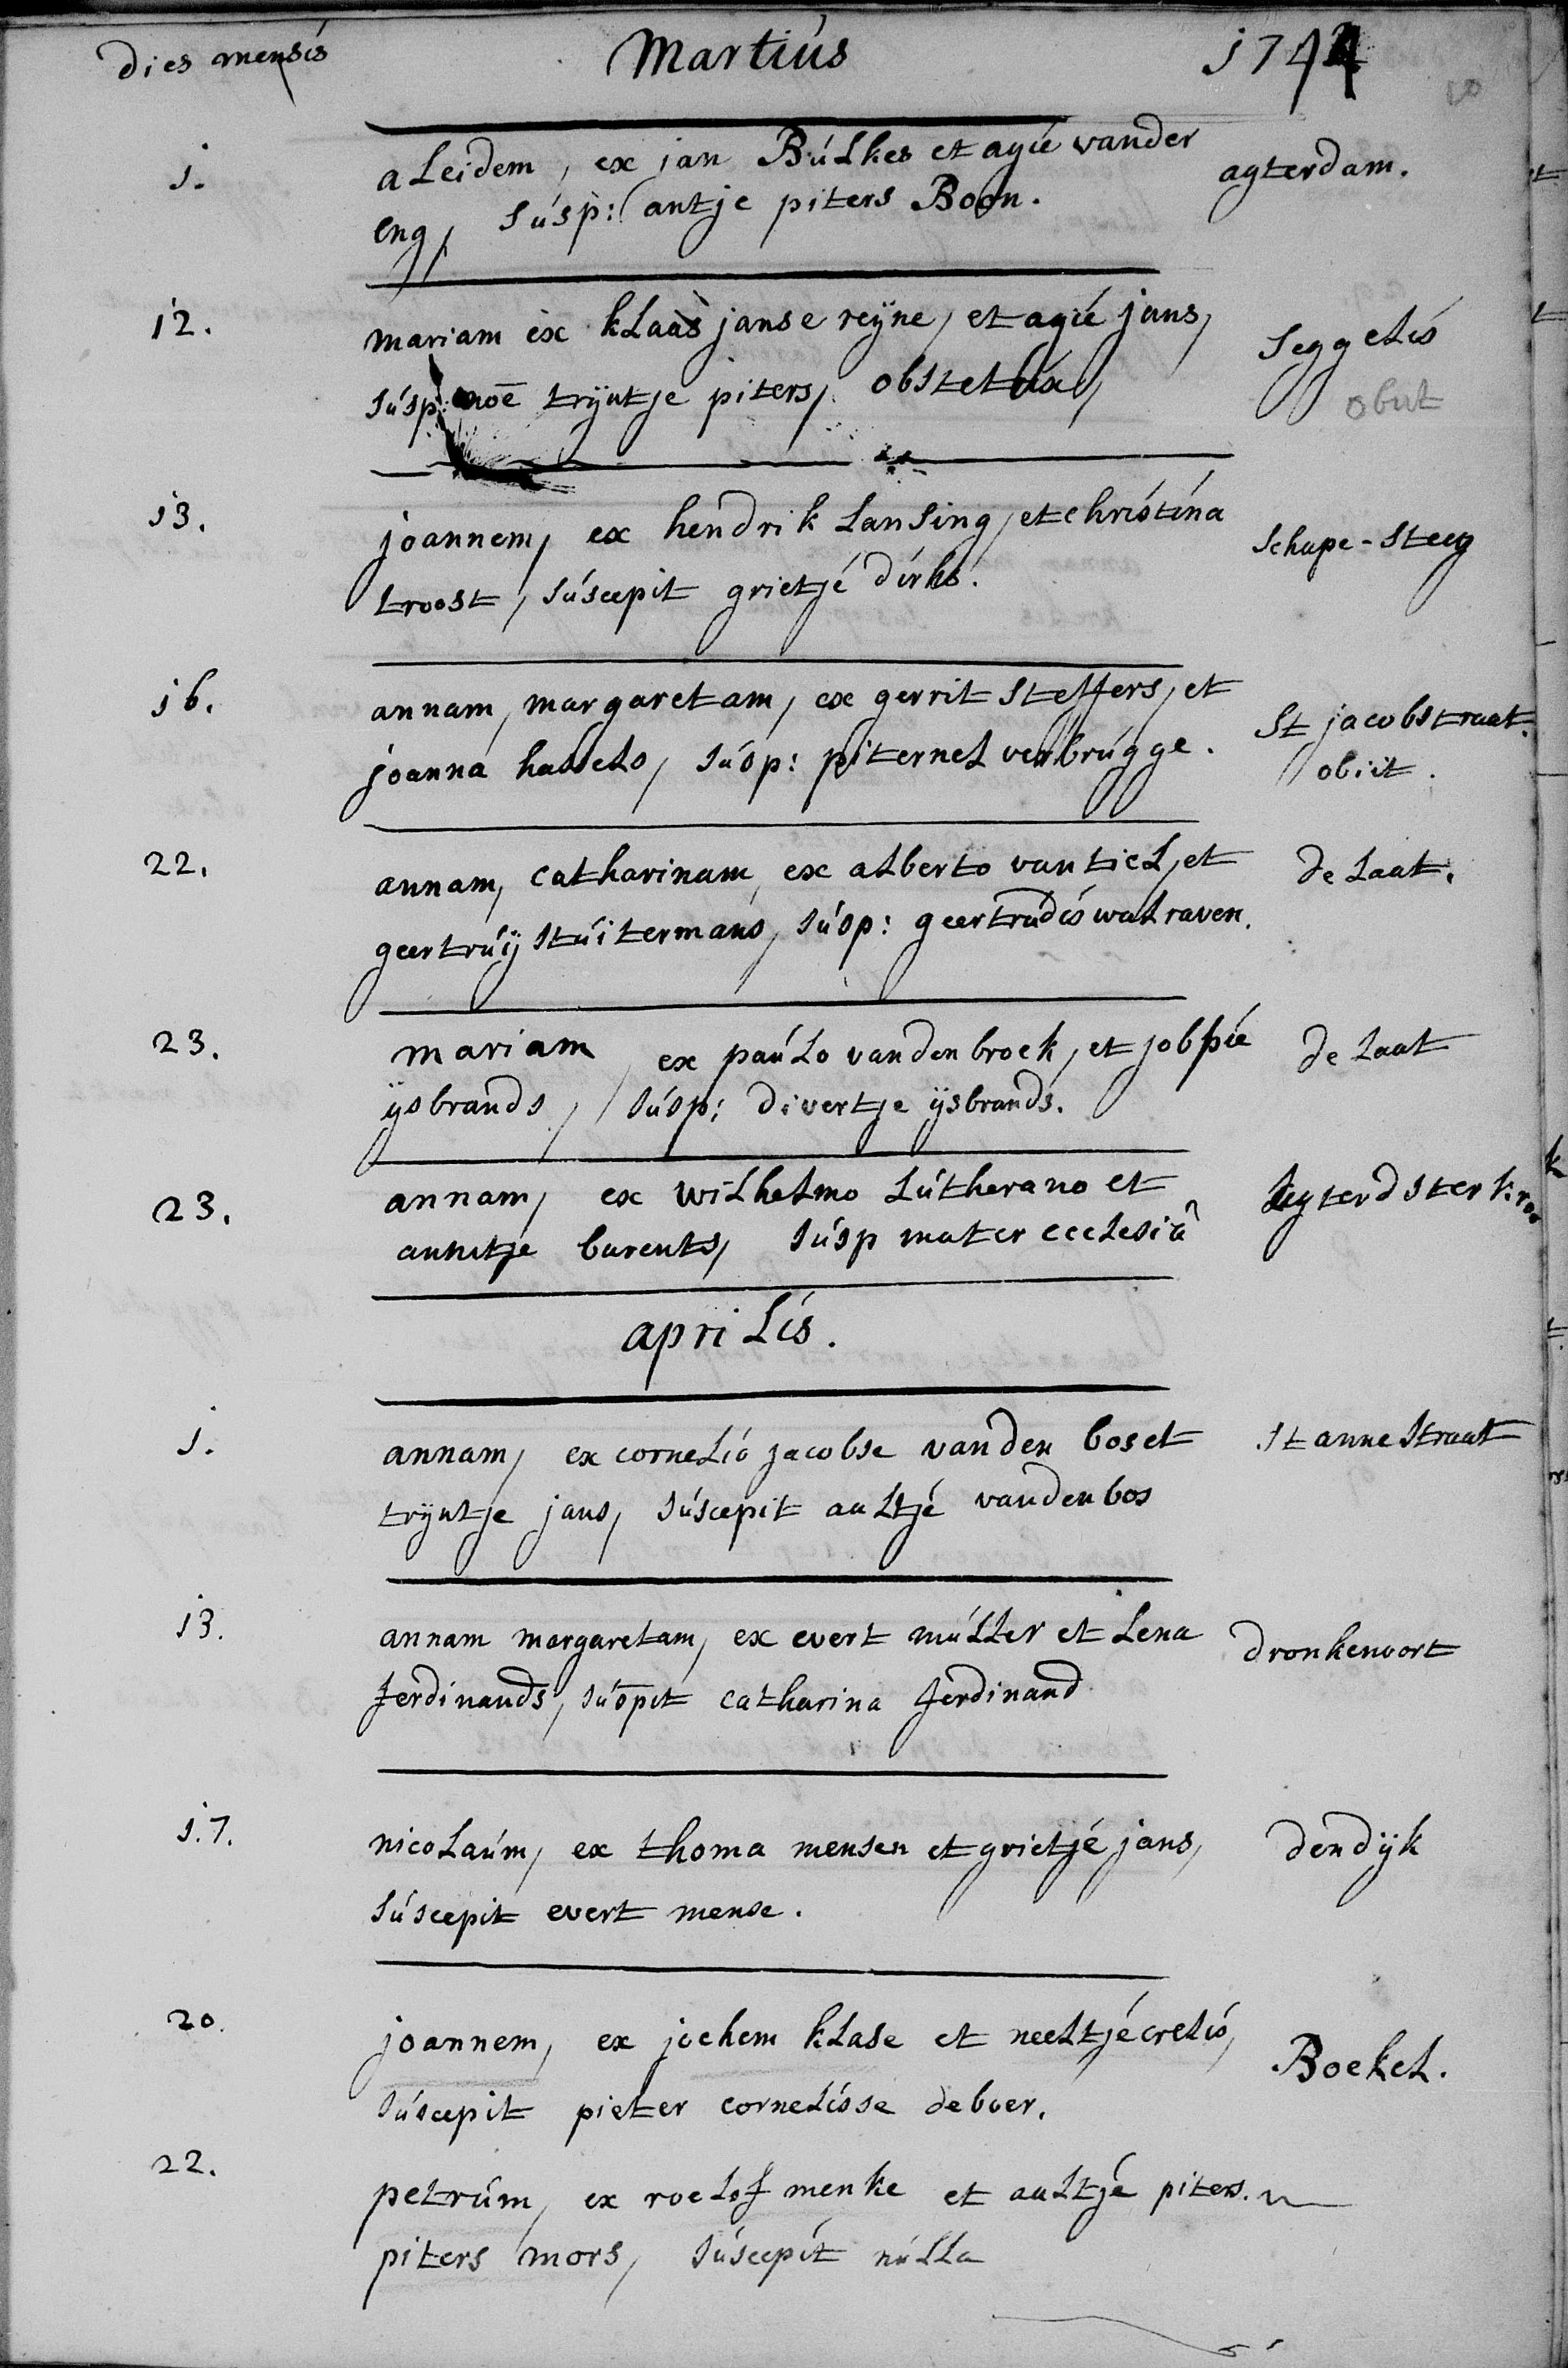 dies mensis Martius 1744
1. aleidem, ex jan Bulkes et agie vander agterdam.
eng, susp: antje piters Boon.
12. mariam ex klaas janse reÿne, et agie jans, Seggelis
susp: noē trÿntje piters, obstetrix, obiit
13. joannem, ex hendrik Lansing, et christina Schape-steeg
troost, suscepit grietje dirks.
16. annam, margaretam, ex gerrit steffers, et St jacobstraat.
joanna hassels, susp: piternel verbrugge. obiit.
22. annam, catharinam, ex alberto van tiel, et de Laat.
geertruÿ stuitermans, susp: geertrudis walraven.
23. mariam, ex paulo vanden broek, et jobpie de Laat
ÿsbrands, susp: divertje ÿsbrands.
23. annam, ex wilhelmo Lutherano et
annetje barents, susp mater ecclesia
aprilis.
1. annam, ex cornelis jacobse vanden bos et St anne straat
trÿntje jans, suscepit aaltje vanden bos
13. annam margaretam, ex evert muller et Lena dronkenoort
ferdinands, suspit catharina ferdinand
17. nicolaum, ex thoma mensen et grietje jans, den dÿk
suscepit evert mense.
20. joannem, ex jochem klase et neeltje crelis, Boekel.
suscepit pieter cornelisse deboer.
22. petrum, ex roelof menke et aaltje piters.
piters mors, suscepit nulla